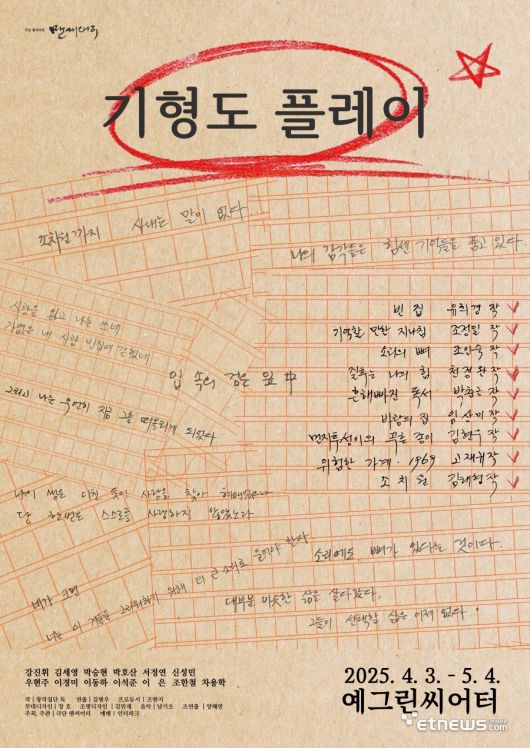 극단 맨씨어터
맨씨어터
기형도 플레이
조차원까지 사내는 말이 없다...
나의 감각들은 힘센 기억들을 품고 있다.
사랑을 잃고 나는 쓰네
가엾은 내 사랑 빈집에 갇혔네
입 속의 검은 잎 中
그리고 나는 우연히 지금 그를 떠올리게 되었다
빈 집 유희경 작
기억할 만한 지나침 조정일 작
소리의 뼈 조인숙 작
질투는 나의 힘 천정완 작
흔해빠진 독서 박춘근 작
바람의 집 임상미 작
먼지투성이의 푸른 종이 김현우 작
위험한 가계·1969 고재귀 작
조치원 김태형 작
나의 생은 미친 듯이 사랑을 찾아 헤매었으나
단 한번도 스스로를 사랑하지 않았노라
네가 크면
너는 이 겨울을 그리워하기 위해 더 큰 소리로 울어야 한다.
소리에도 뼈가 있다는 것이다.
대부분 비슷한 삶을 살다갔다,
그들이 선택할 삶은 이제 없다.
강진휘 김세영 박승현 박호산 서정연 신성민
우현주 이경미 이동하 이석준 이 은 조한철 차용학
작 | 창작집단 독 연출 | 김현우 프로듀서 | 조현지
무대디자인 | 장 호 조명디자인 | 김민재 음악 | 남기오 조연출 | 양혜연
주최, 주관 | 극단 맨씨어터 예매 | 인터파크
2025. 4. 3. - 5. 4.
예그린씨어터
etnews.com